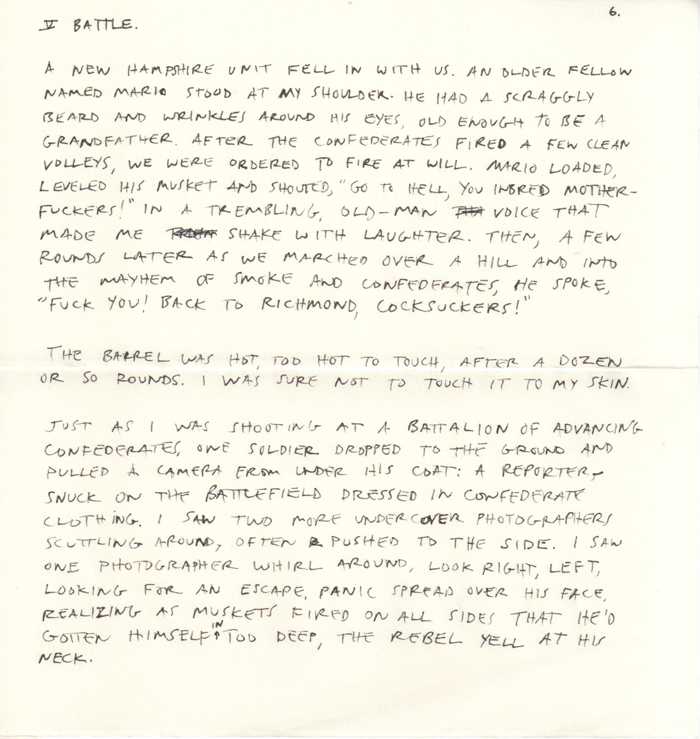 6.
V BATTLE.
A NEW HAMPSHIRE UNIT FELL IN WITH US. AN OLDER FELLOW
NAMED MARIO STOOD AT MY SHOULDER. HE HAD A SCRAGGLY
BEARD AND WRINKLES AROUND HIS EYES, OLD ENOUGH TO BE A
GRANDFATHER. AFTER THE CONFEDERATES FIRED A FEW CLEAN
VOLLEYS, WE WERE ORDERED TO FIRE AT WILL. MARIO LOADED,
LEVELED HIS MUSKET AND SHOUTED, "GO TO HELL, YOU INBRED MOTHER-
FUCKERS!" IN A TREMBLING, OLD-MAN VOICE THAT
MADE ME SHAKE WITH LAUGHTER. THEN, A FEW
ROUNDS LATER AS WE MARCHED OVER A HILL AND INTO
THE MAYHEM OF SMOKE AND CONFEDERATES, HE SPOKE,
"FUCK YOU! BACK TO RICHMOND, COCKSUCKERS!"
THE BARREL WAS HOT, TOO HOT TO TOUCH, AFTER A DOZEN
OR SO ROUNDS. I WAS SURE NOT TO TOUCH IT TO MY SKIN.
JUST AS I WAS SHOOTING AT A BATTALION OF ADVANCING
CONFEDERATES, ONE SOLDIER DROPPED TO THE GROUND AND
PULLED A CAMERA FROM UNDER HIS COAT: A REPORTER,
SNUCK ON THE BATTLEFIELD DRESSED IN CONFEDERATE
CLOTHING. I SAW TWO MORE UNDERCOVER PHOTOGRAPHERS
SCUTTLING AROUND, OFTEN PUSHED TO THE SIDE. I SAW
ONE PHOTOGRAPHER WHIRL AROUND, LOOK RIGHT, LEFT,
LOOKING FOR AN ESCAPE, PANIC SPREAD OVER HIS FACE,
REALIZING AS MUSKETS FIRED ON ALL SIDES THAT HE'D
GOTTEN HIMSELF IN TOO DEEP, THE REBEL YELL AT HIS
NECK.